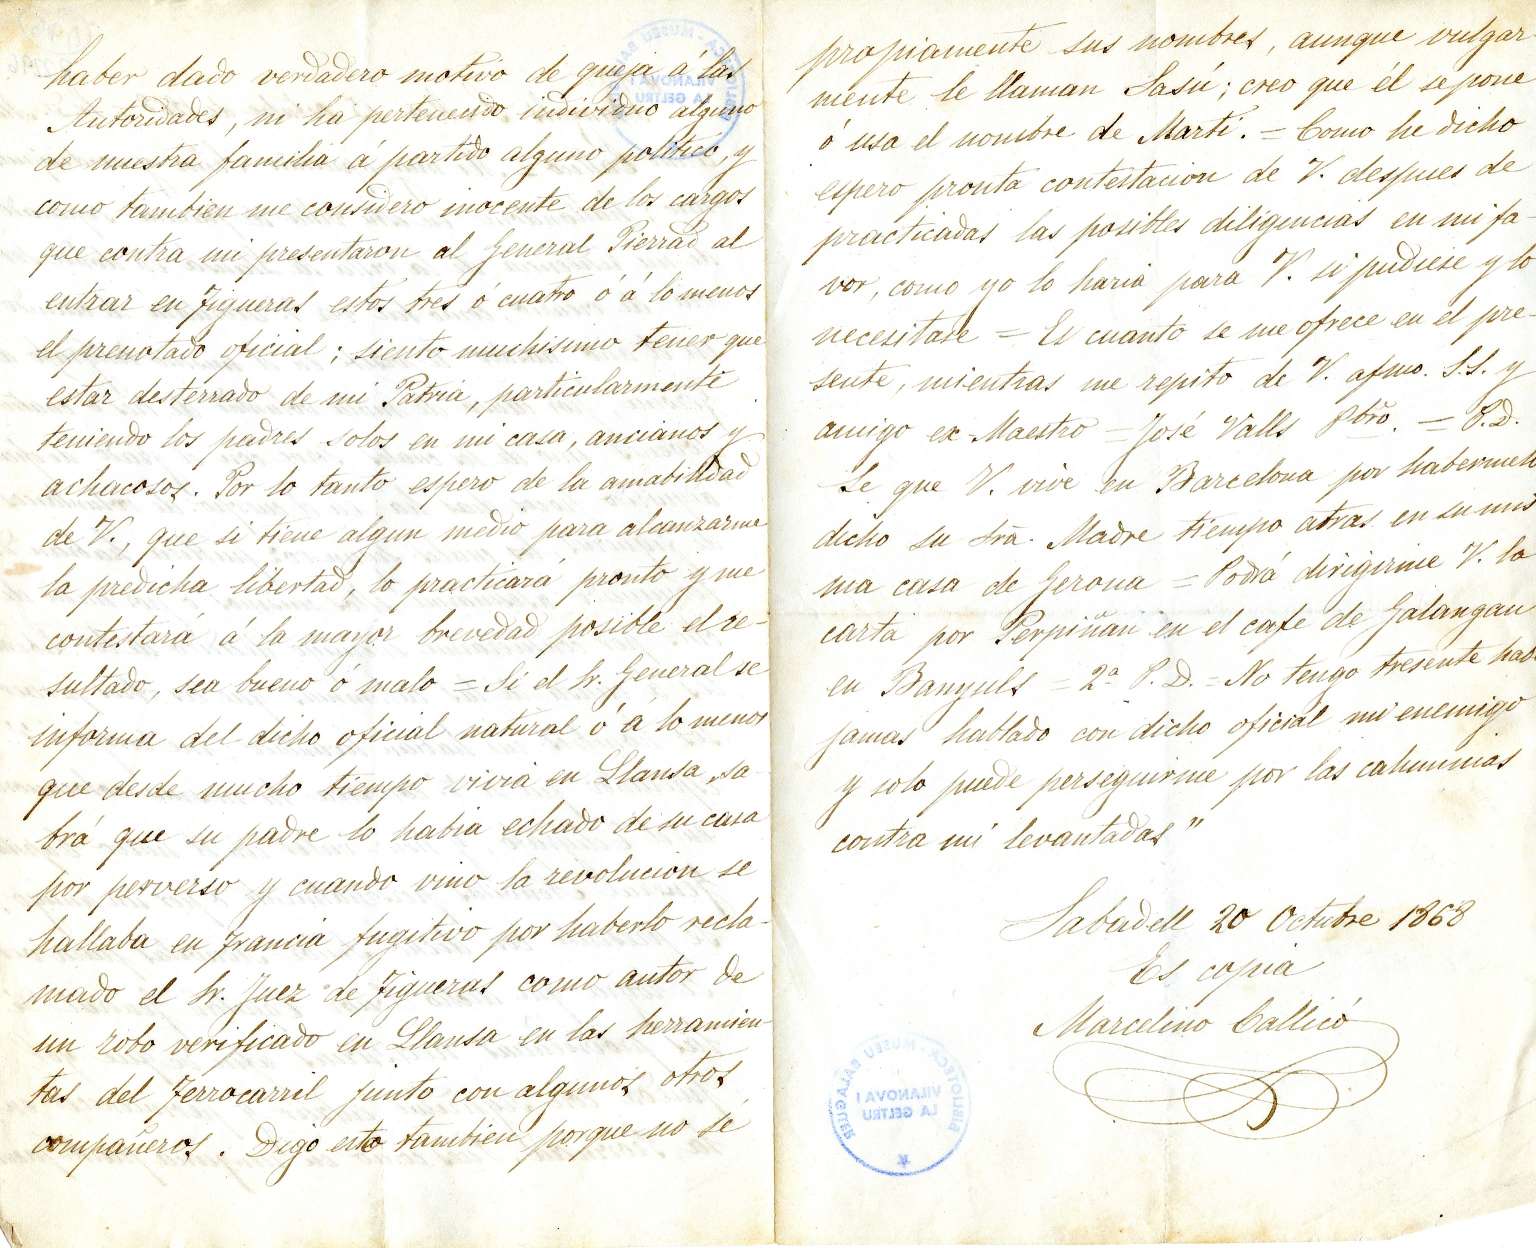 haber dado verdadero motivo de queja á las
Autoridades, ni ha pertenecido individuo alguno
de nuestra familia á partido alguno politico, y
como tambien me considero inocente de los cargos
que contra mi presentaron al General Pierrad al
entrar en Figueras estos tres ó cuatro ó á lo menos
el prenotado oficial; siento muchisimo tener que
estar desterrado de mi Patria, particularmente
teniendo los padres solos en mi casa, ancianos y
achacosos. Por lo tanto espero de la amabilidad
de V., que si tiene algun medio para alcanzarme
la predicha libertad, lo practicará pronto y me
contestará á la mayor brevedad posible el re-
sultado, sea bueno ó malo = Si el Sr. General se
informa del dicho oficial natural ó á lo menos
que desde mucho tiempo vivia en Llansa, sa-
brá que su padre lo habia echado de su casa
por perverso y cuando vino la revolucion se
hallaba en Francia fugitivo por haberlo recla-
mado el Sr. Juez de Figueras como autor de
un robo verificado en Llansa en las herramien-
tas del Ferrocarril junto con algunos otros
compañeros. Digo esto tambien porque no sé
propiamente sus nombres, aunque vulgar-
mente le llaman Sasú; creo que él se pone
ó usa el nombre de Martí. = Como he dicho
espero pronta contestacion de V. despues de
practicadas las posibles diligencias en mi fa
vor, como yo lo haria para V. si pudiese y lo
necesitase = Es cuanto se me ofrece en el pre-
sente, mientras me repito de V. afmo. S.S. y
amigo ex-Maestro = José Valls Pbro. = P.D.
Se que V. vive en Barcelona por habermelo
dicho su Sra. Madre tiempo atras en su mis
ma casa de Gerona = Podrá dirigirme V. la
carta por Perpiñan en el cafe de Galangau
en Banyuls = 2ª P.D. = No tengo presente haber
jamas hablado con dicho oficial mi enemigo
y solo puede perseguirme por las calumnias
contra mi levantadas"
Sabadell 20 Octubre 1868
Es copia
Marcelino Callicó
BIBLIOTECA-MUSEU BALAGUER
VILANOVA I
LA GELTRU